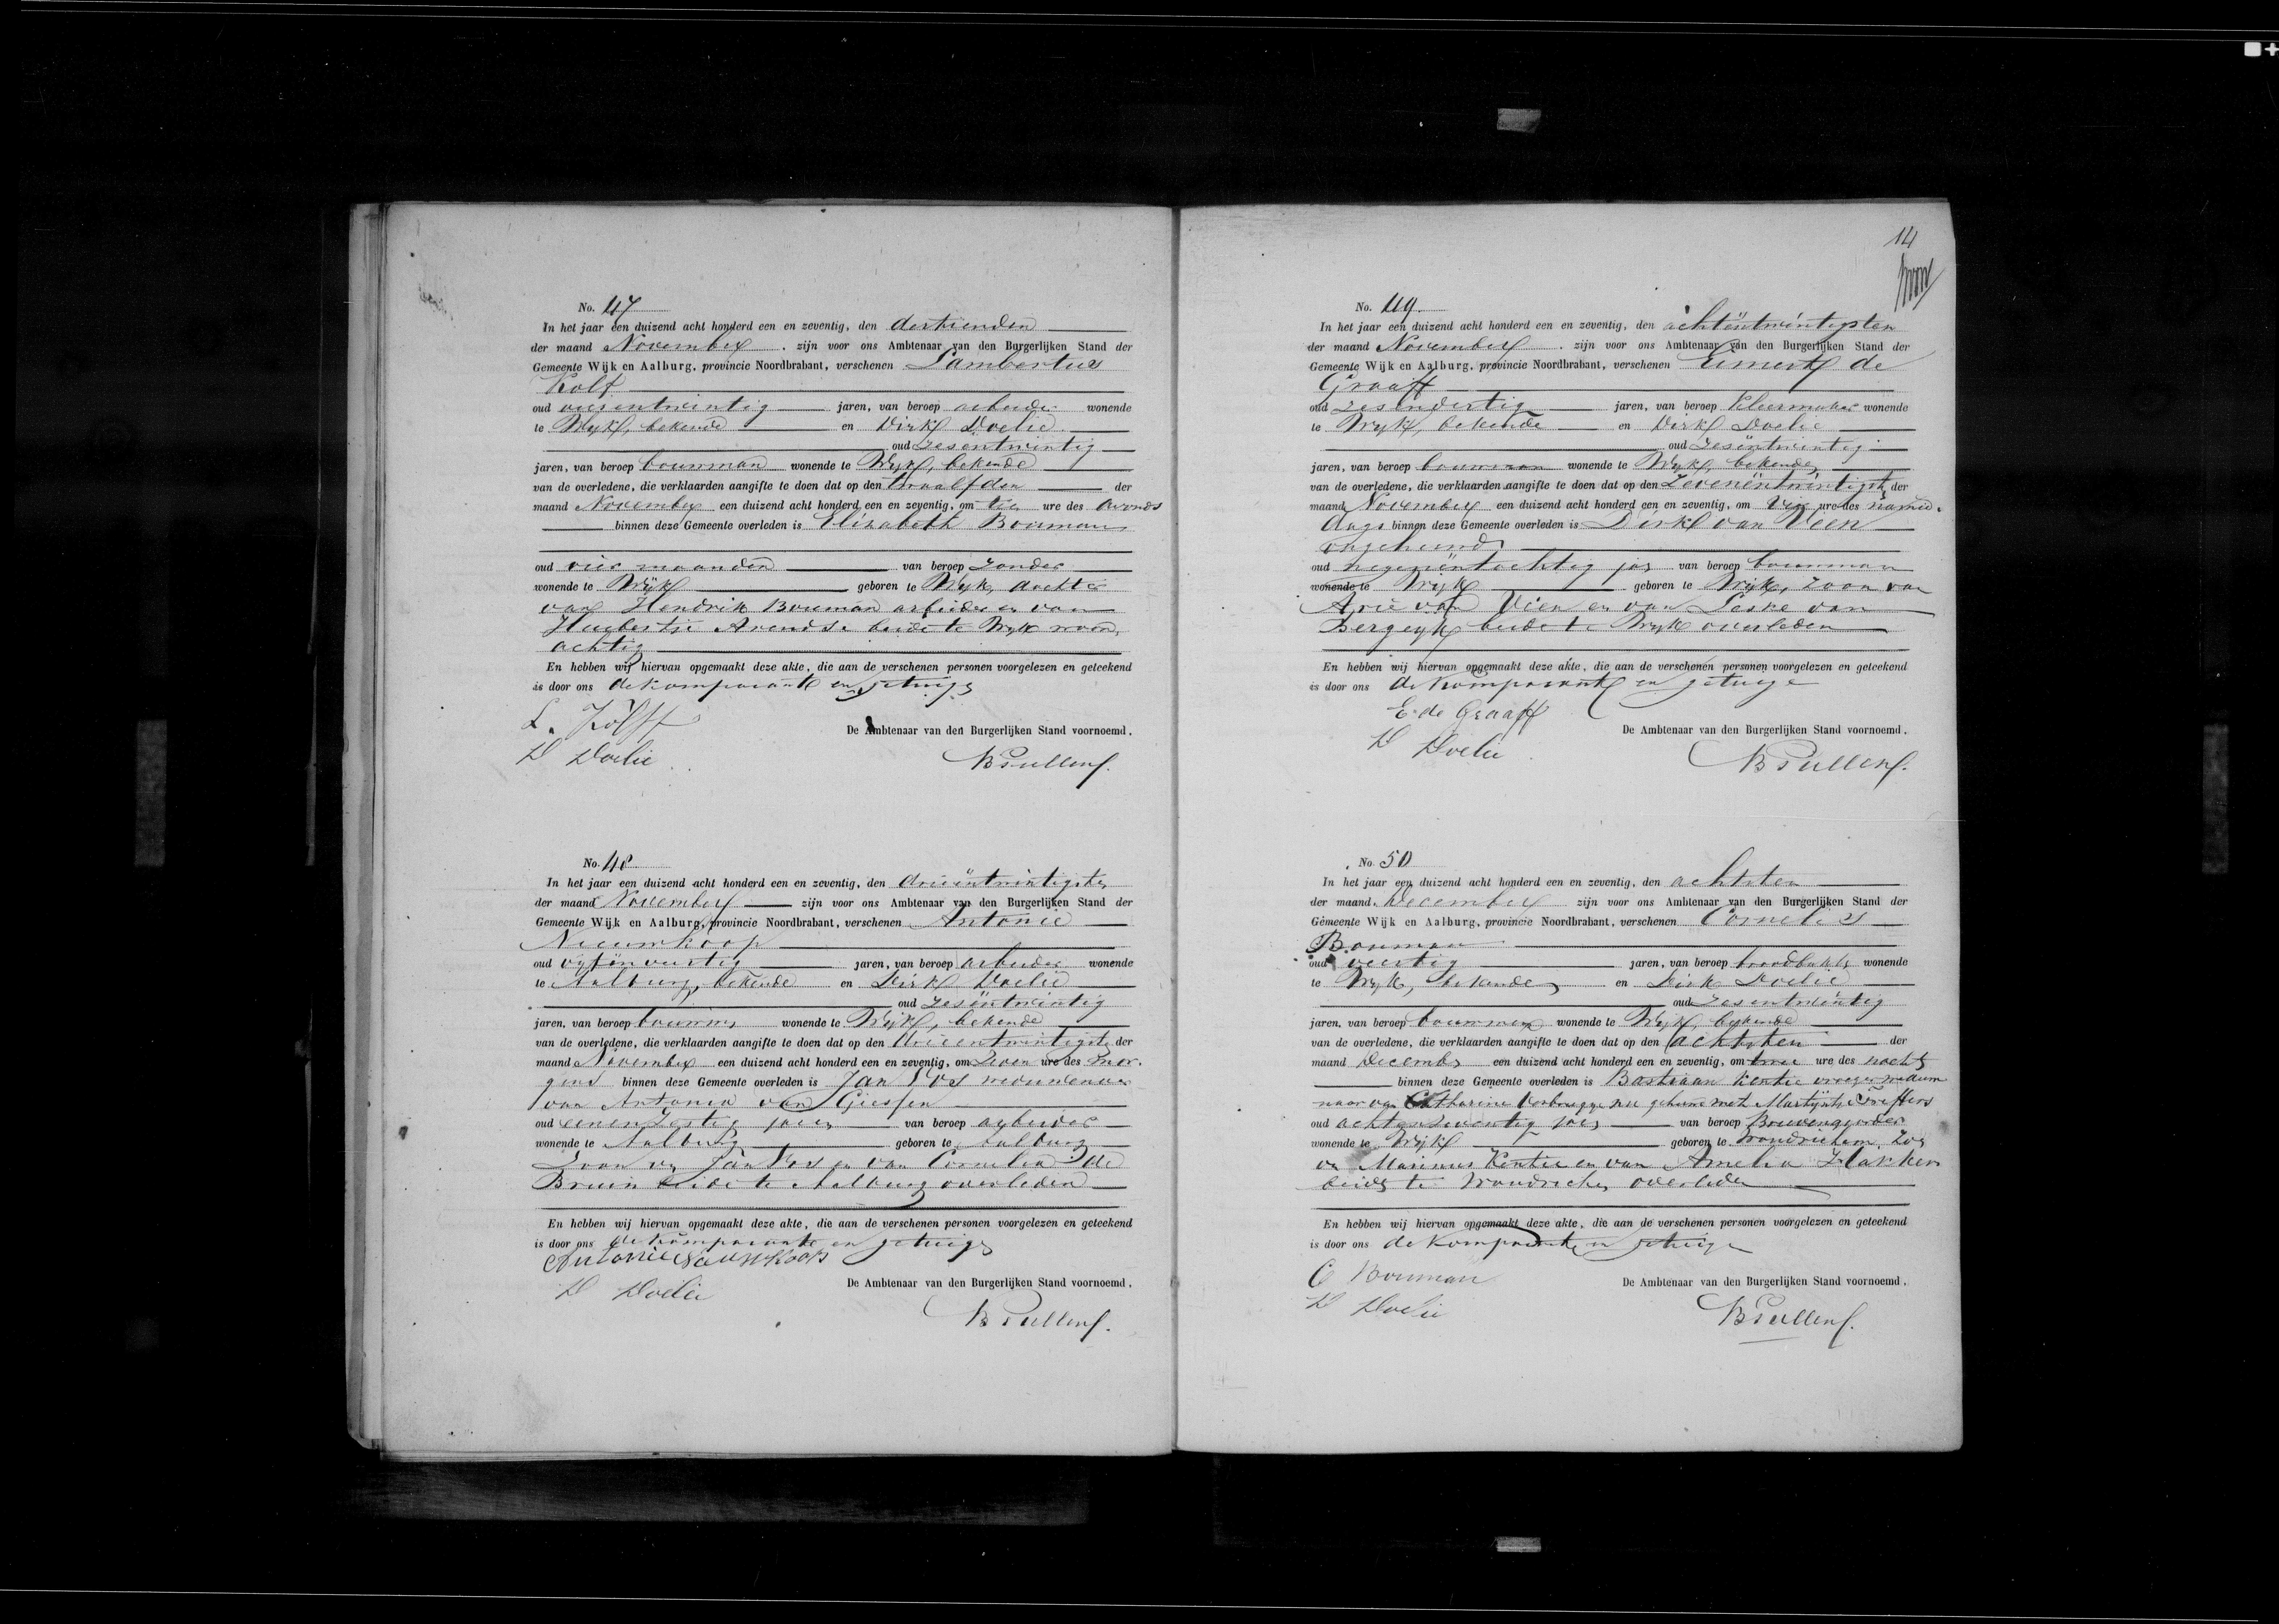 No. 47
In het jaar een duizend acht honderd een en zeventig, den dertienden
der maand November. zijn voor ons Ambtenaar van den Burgerlijken Stand der
Gemeente Wijk en Aalburg, provincie Noordbrabant, verschenen Lambertus
Kolf
oud vierentwintig jaren, van beroep arbeider wonende
te Wijk, bekende en Dirk Doelie
oud zesentwintig
jaren, van beroep bouwman wonende te Wijk, bekende
van de overledene, die verklaarden aangifte te doen dat op den twaalfden der
maand November een duizend acht honderd een en zeventig, om tien ure des avonds
binnen deze Gemeente overleden is Elizabeth Bouman
oud vier maanden van beroep zonder
wonende te Wijk geboren te Wijk, dochter
van Hendrik Bouman arbeider en van
Huibertje Arendse beide te Wijk woon,
achtig
En hebben wij hiervan opgemaakt deze akte, die aan de verschenen personen voorgelezen en geteekend
is door ons de komparante en getuige
L. Kolff
De Ambtenaar van den Burgerlijken Stand voornoemd.
D Doelie
No. 48
In het jaar een duizend acht honderd een en zeventig, den drieëntwintigste
der maand November zijn voor ons Ambtenaar van den Burgerlijken Stand der
Gemeente Wijk en Aalburg, provincie Noordbrabant, verschenen Antonie
Nieuwkoop
oud vijfenveertig jaren, van beroep arbeider wonende
te Aalburg, bekende en Dirk Doelie
oud zesëntwintig
jaren, van beroep bouwm wonende te Wijk, bekende
van de overledene, die verklaarden aangifte te doen dat op den drieentwintigste der
maand November een duizend acht honderd een en zeventig, om zeven ure des mor.
gens binnen deze Gemeente overleden is Jan Vos weduwenaar
van Antonia van Giessen
oud eenenzestig jaren van beroep arbeider
wonende te Aalburg geboren te Aalburg
Zoon van Jan Vos en van Cornelia de
Bruin beide te Aalburg overleden
En hebben wij hiervan opgemaakt deze akte, die aan de verschenen personen voorgelezen en geteekend
is door ons de komparante en getuige
Antonie
D Doelie
De Ambtenaar van den Burgerlijken Stand voornoemd.
14
No. 49.
In het jaar een duizend acht honderd een en zeventig, den achtëntwintigsten
der maand November. zijn voor ons Ambtenaar van den Burgerlijken Stand der
Gemeente Wijk en Aalburg, provincie Noordbrabant, verschenen Eimert de
Graaff
oud zesendertig jaren, van beroep kleermaker wonende
te Wijk, bekende en Dirk Doelie
oud zesëntwintig
jaren, van beroep bouwman wonende te Wijk, bekende
van de overledene, die verklaarden aangifte te doen dat op den zevenëntwintigste der
maand November een duizend acht honderd een en zeventig, om vier ure des namid.
dags binnen deze Gemeente overleden is Dirk van Veen
ongehuwd
oud negenëntachtig jaar van beroep bouwman
wonende te Wijk geboren te Wijk, zoon van
Arie van Veen en van Leske van
Bergeyk beide te Wijk overleden
En hebben wij hiervan opgemaakt deze akte, die aan de verschenen personen voorgelezen en geteekend
is door ons de komparante en getuige
E. de Graaff
De Ambtenaar van den Burgerlijken Stand voornoemd.
D Doelie
No. 50
In het jaar een duizend acht honderd een en zeventig, den achtsten
der maand December zijn voor ons Ambtenaar van den Burgerlijken Stand der
Gemeente Wijk en Aalburg, provincie Noordbrabant, verschenen Cornelis
Bouman
oud veertig jaren, van beroep broodbakker wonende
te Wijk, bekende en Dirk Doelie
oud zesentwintig
jaren, van beroep bouwman wonende te Wijk, bekende
van de overledene, die verklaarden aangifte te doen dat op den achtsten der
maand December een duizend acht honderd een en zeventig, om twee ure des nachts
binnen deze Gemeente overleden is Bastiaan Kentie vroeger weduw
naar van Catharina Verbrugge nu gehuwd met Martijntje Treffers
oud achtenzeventig jaar van beroep
wonende te Wijk geboren te Woudrichem, zoon
van Marinus Kentie en van Amelia Harkes
beide te Woudrichem overleden
En hebben wij hiervan opgemaakt deze akte, die aan de verschenen personen voorgelezen en geteekend
is door ons de komparante en getuige
C Bouman
De Ambtenaar van den Burgerlijken Stand voornoemd.
D Doelie